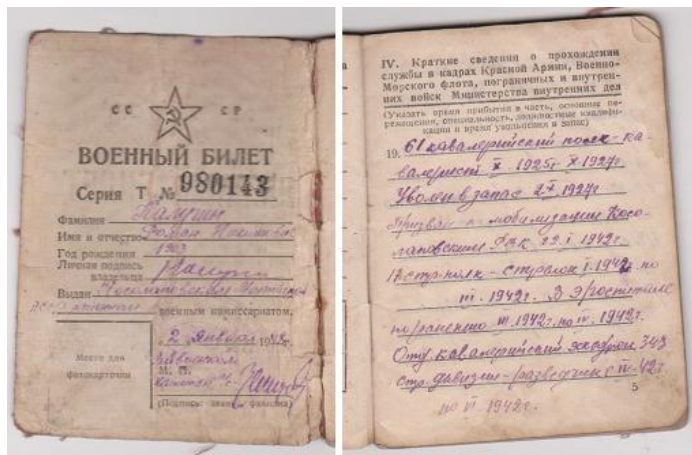 СС СР
ВОЕННЫЙ БИЛЕТ
Серия Т № 980143
Фамилия
Имя и отчество Роман
Год рождения 1903
Личная подпись
владельца
Выдан
военным комиссариатом.
„2 января 1948г.
Место для
фотокарточки
М. П.
(Подпись, звание, фамилия)
IV. Краткие сведения о прохождении
службы в кадрах Красной Армии, Военно-
Морского флота, пограничных и внутрен-
них войск Министерства внутренних дел
(Указать время прибытия в часть, основные пе-
ремещения, специальность, должностные квалифи-
кации и время увольнения в запас)
19 61 кавалерийский полк - ка-
валерист X. 1925г. X. 1927г.
Уволен в запас 2.X. 1927г.
Призван по мобилизации Косо-
лаповским РВК 29.I. 1942г.
стр. полк - стрелок I. 1942 по
III. 1942г. В эвогоспитале
по ранению III. 1942г. по IV. 1942г.
Отд. кавалерийский эскадрон 343
стр. дивизии - разведчик с IV. 42г.
по VI. 1942г.
5